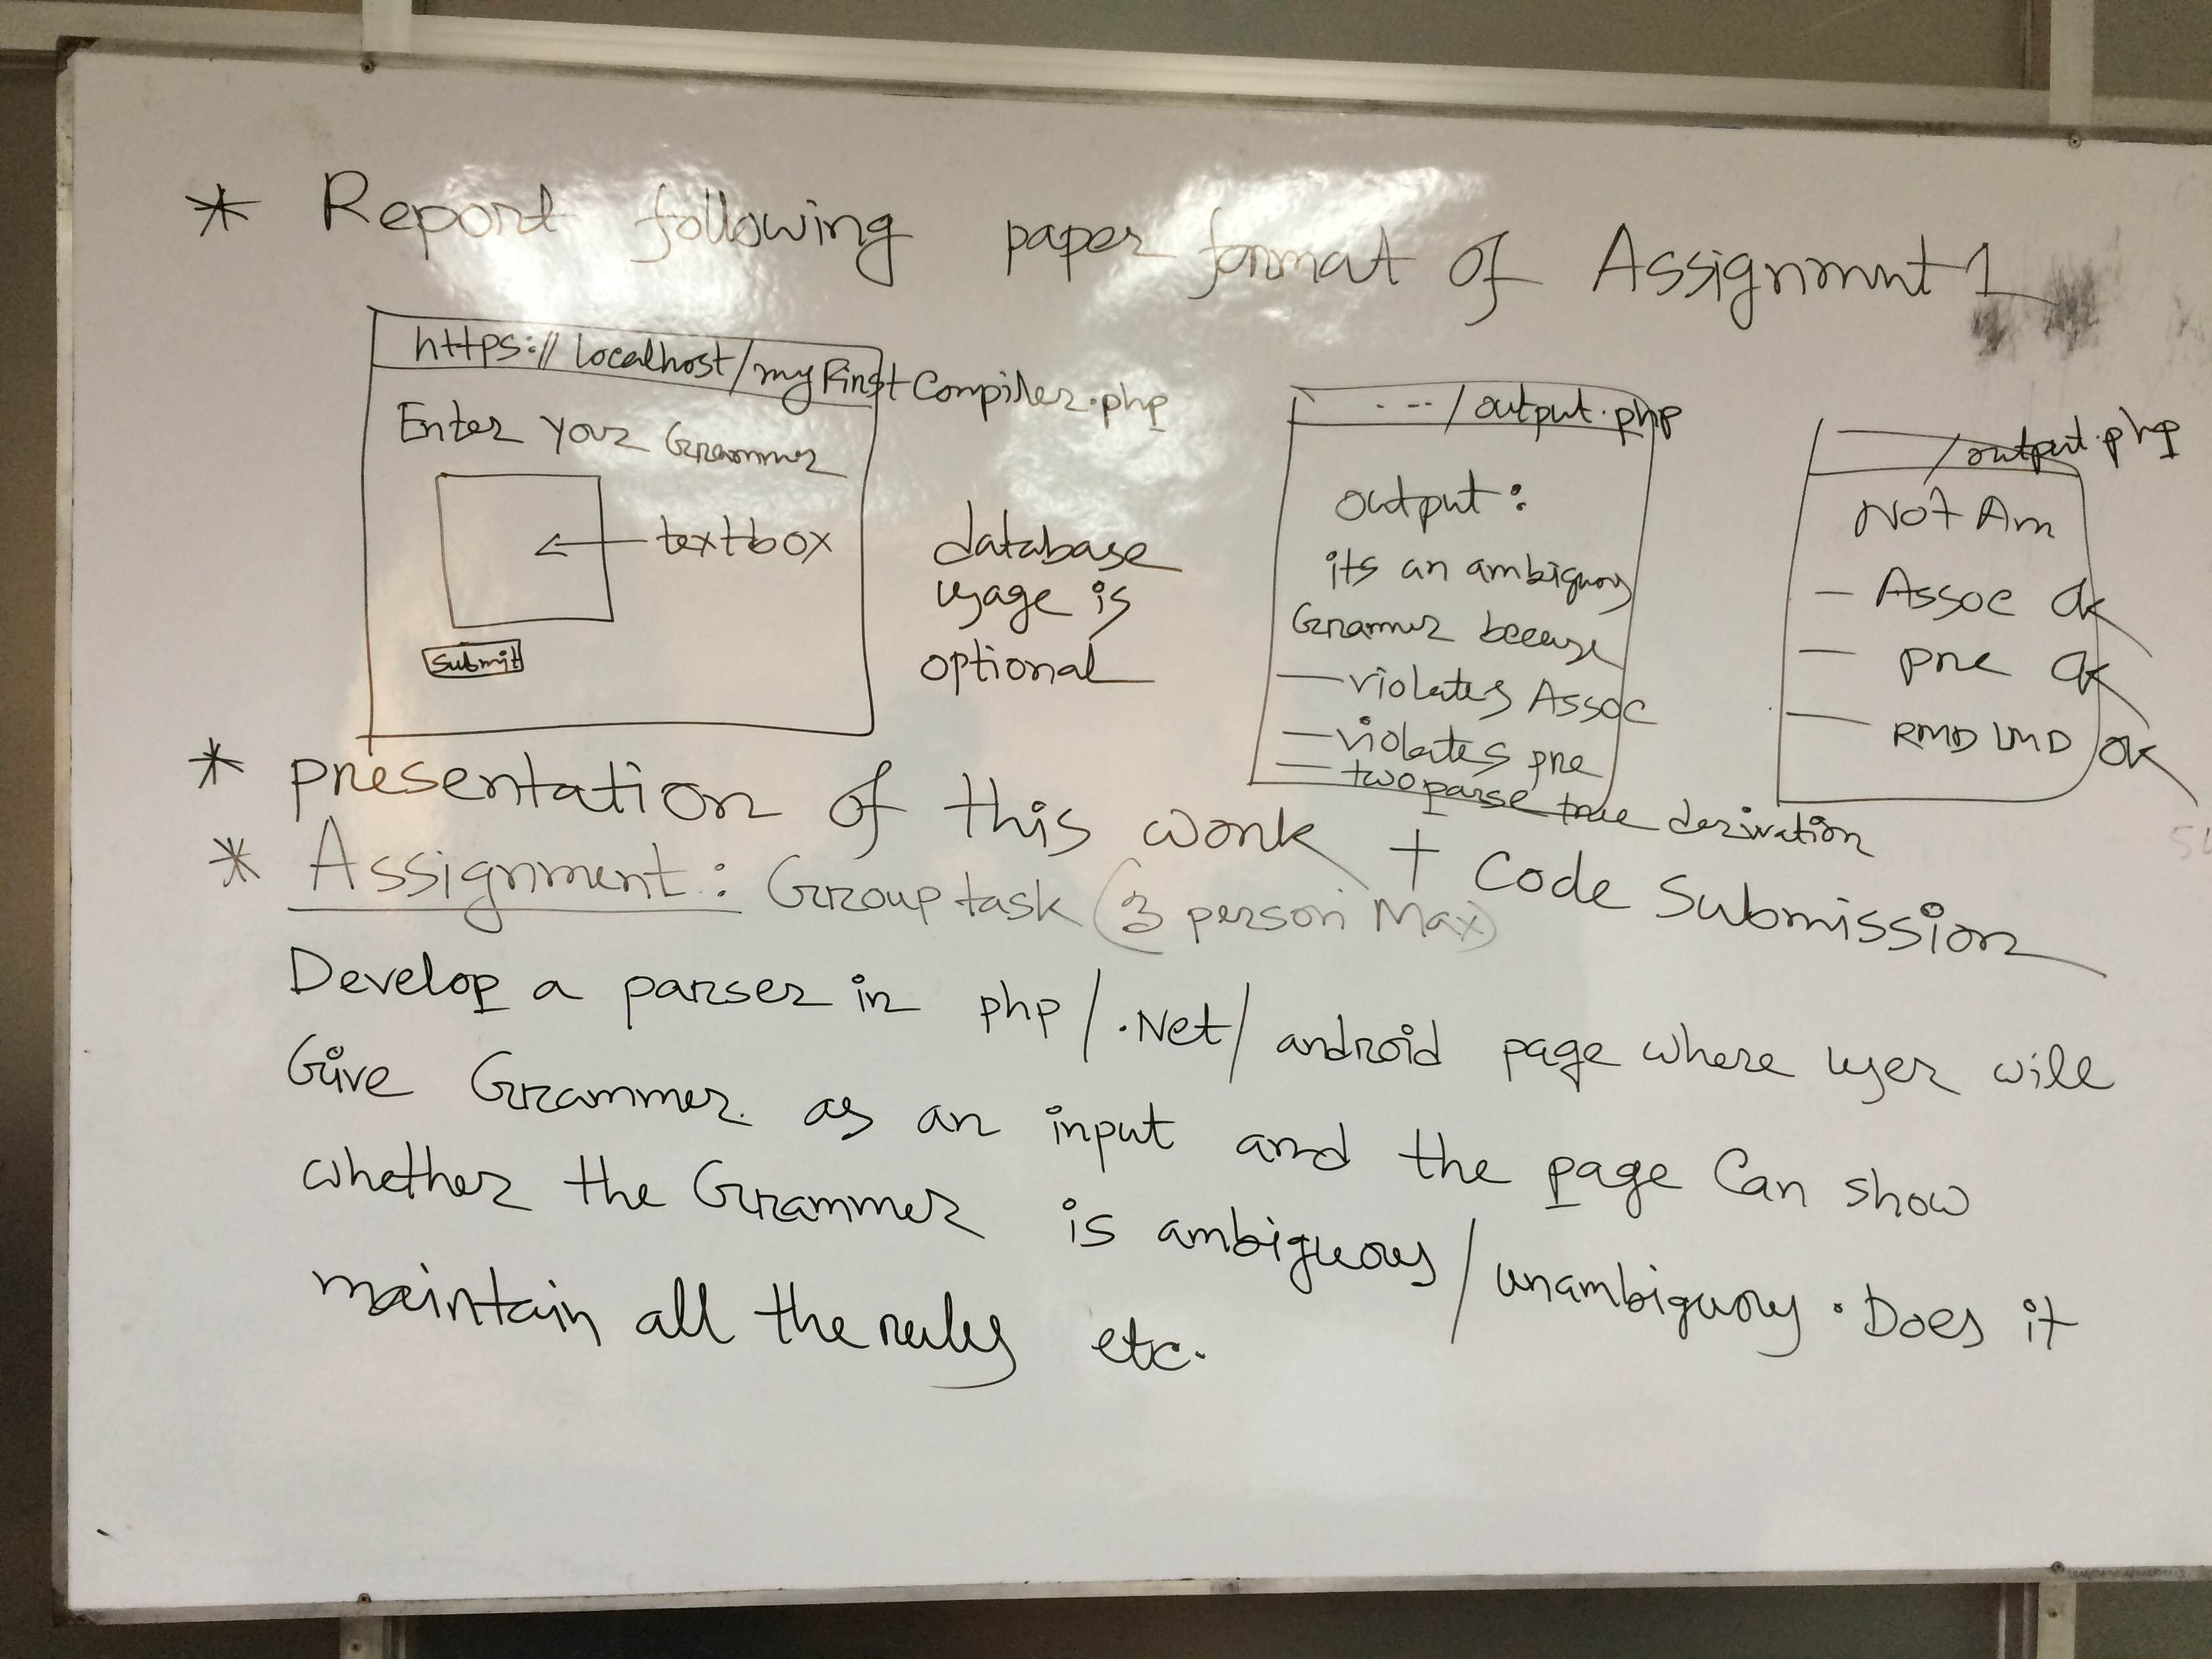 * Report following paper format of Assignmnt 1
https:// localhost/myFirstCompiler.php
Enter your Grammer
textbox
Submit
database
usage is
optional
---/output.php
output:
its an ambiguous
Grammer because
— violates Assoc
— violates pre
— two parse tree derivation
/output.php
Not Am
— Assoc ok
— pre ok
— RMD LMD ok
* presentation of this work + Code Submission
* Assignment: Group task (3 person Max)
Develop a parser in php/.Net/android page where user will
Give Grammer as an input and the page Can show
whether the Grammer is ambiguous/unambiguous. Does it
maintain all the rules etc.